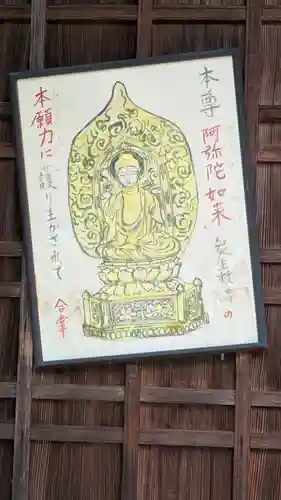 本尊 阿弥陀如来
本願力に護りまかされて
合掌